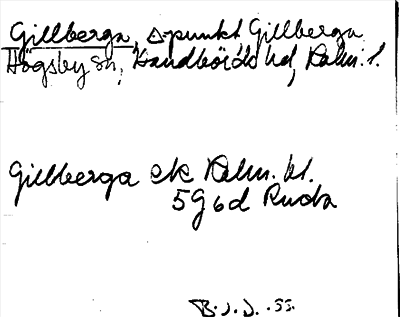 Gillberga, △punkt Gillberga
Högsby sn, Handbörds hd, Kalm. l.
Gillberga ek Kalm. kl.
5G6d Ruda
B.J.J. -55.